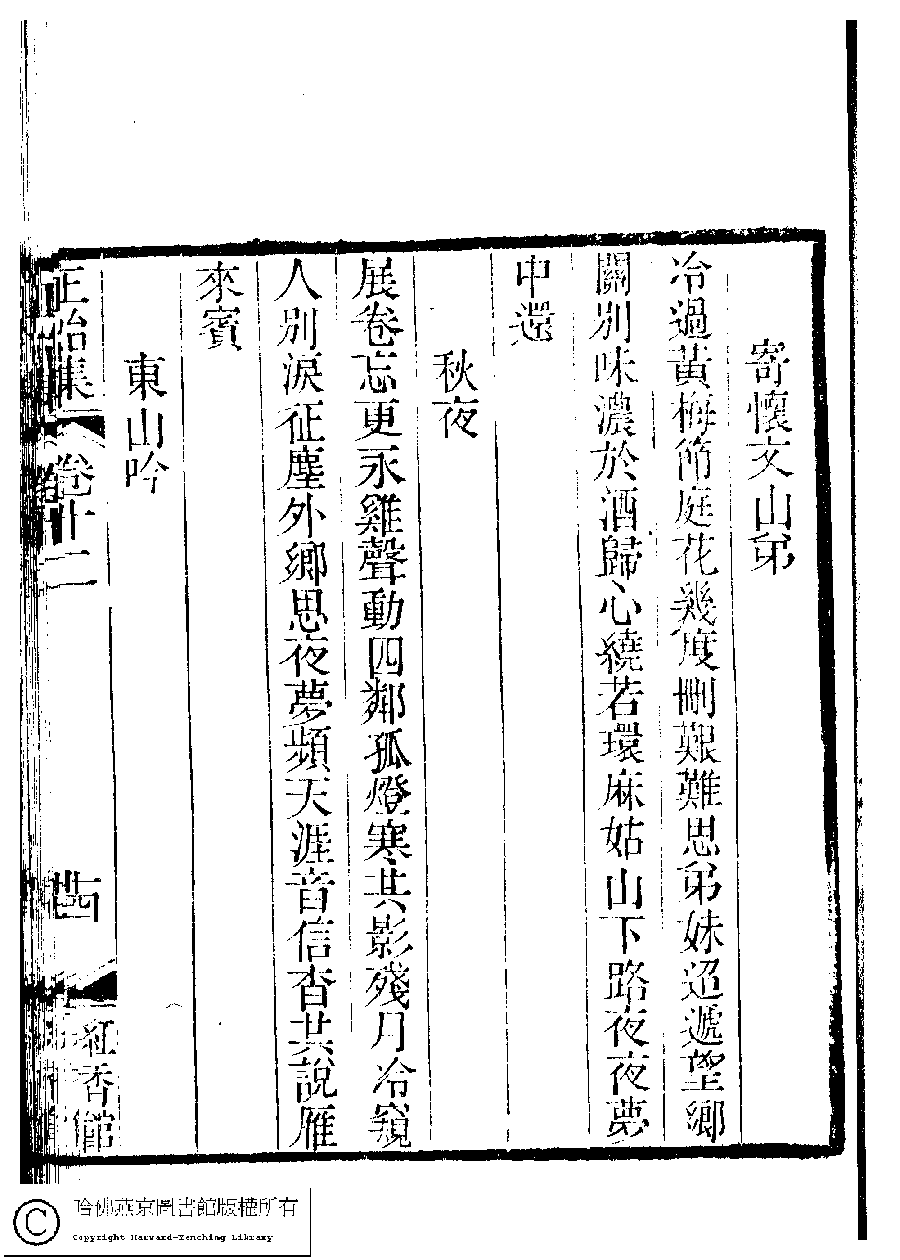 寄懷文山弟
冷過黃梅節庭花幾度刪艱難思弟妹迢遞望鄉
關別味濃於酒歸心繞若環麻姑山下路夜夜夢
中還
秋夜
展卷忘更永雞聲動四鄰孤燈寒共影殘月冷窺
人別淚征塵外鄉思夜夢頻天涯音信杳共說雁
來賓
東山吟
正始集
卷十二
廿四
紅香館
哈佛燕京圖書館版權所有
Copyright Harvard-Yenching Library